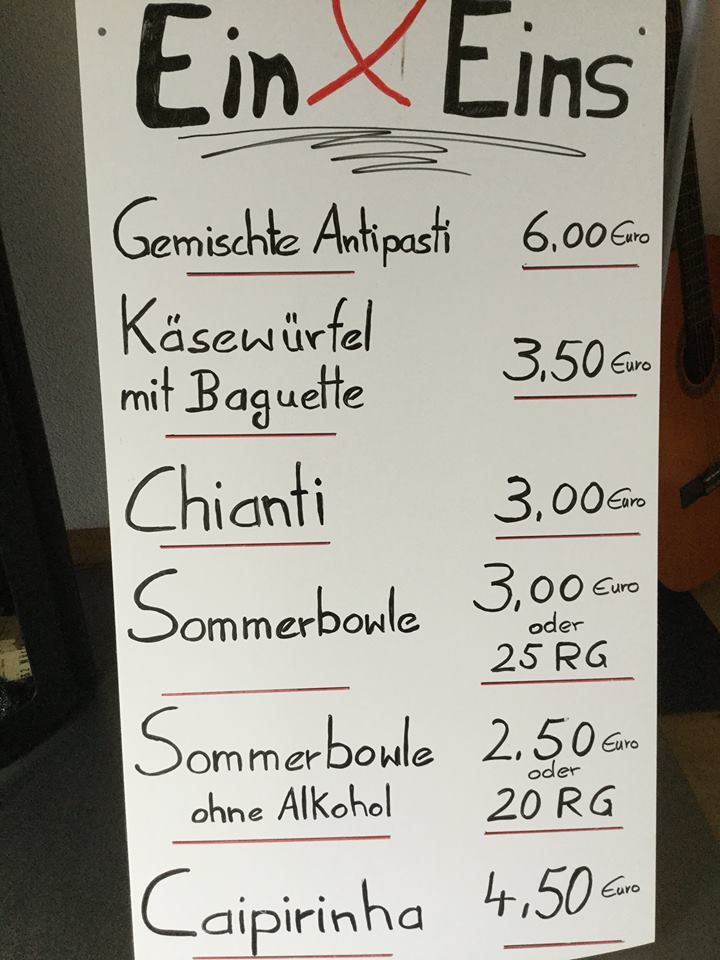 Ein Eins
Gemischte Antipasti 6,00 Euro
Käsewürfel
mit Baguette 3,50 Euro
Chianti 3,00 Euro
Sommerbowle 3,00 Euro
oder
25 RG
Sommerbowle 2,50 Euro
oder
ohne Alkohol 20 RG
Caipirinha 4,50 Euro